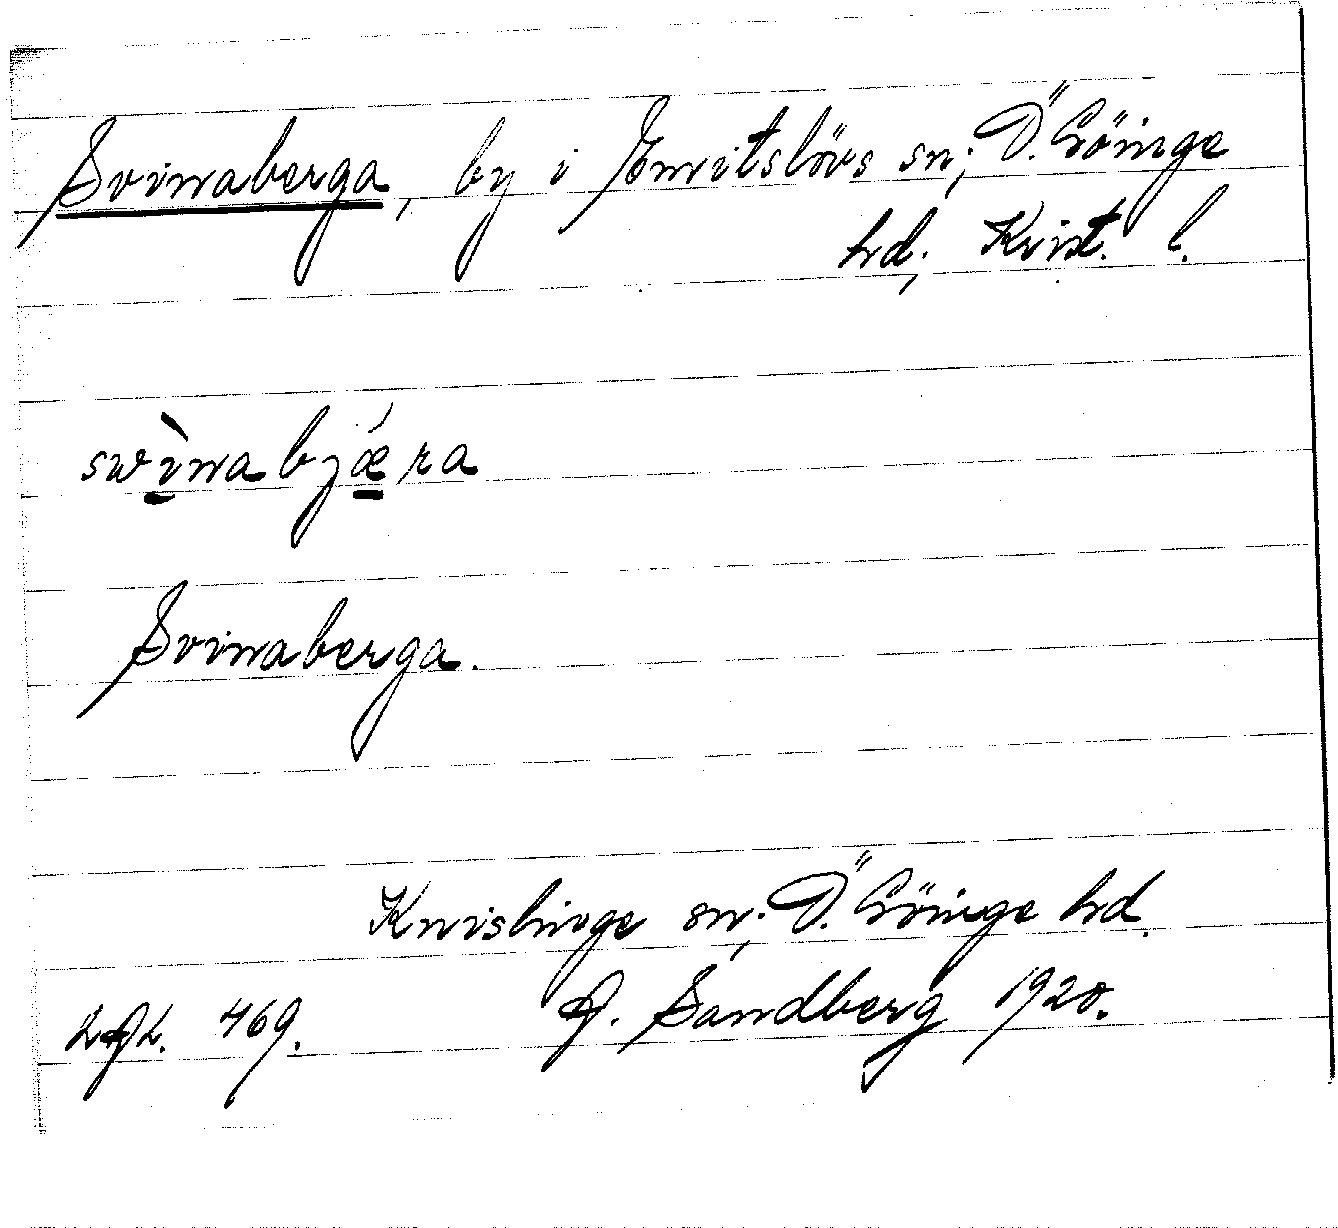 Svinaberga, by i Emitslövs sn; Ö. Göinge
hd; Krist. l.
swìnabjǽra
Svinaberga.
Knislinge sn; Ö. Göinge hd.
469. P. Sandberg 1920.